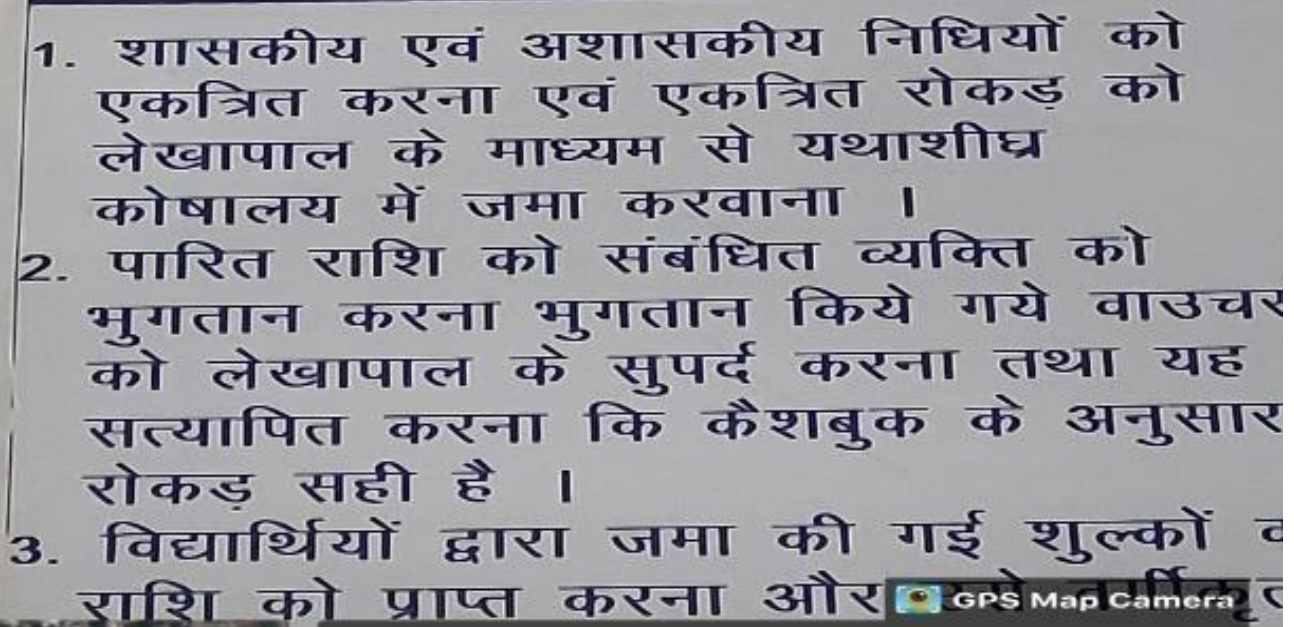 1. शासकीय एवं अशासकीय निधियों को
एकत्रित करना एवं एकत्रित रोकड़ को
लेखापाल के माध्यम से यथाशीघ्र
कोषालय में जमा करवाना ।
2. पारित राशि को संबंधित व्यक्ति को
भुगतान करना भुगतान किये गये वाउचर
को लेखापाल के सुपर्द करना तथा यह
सत्यापित करना कि कैशबुक के अनुसार
रोकड़ सही है ।
3. विद्यार्थियों द्वारा जमा की गई शुल्कों
राशि को प्राप्त करना और
GPS Map Camera